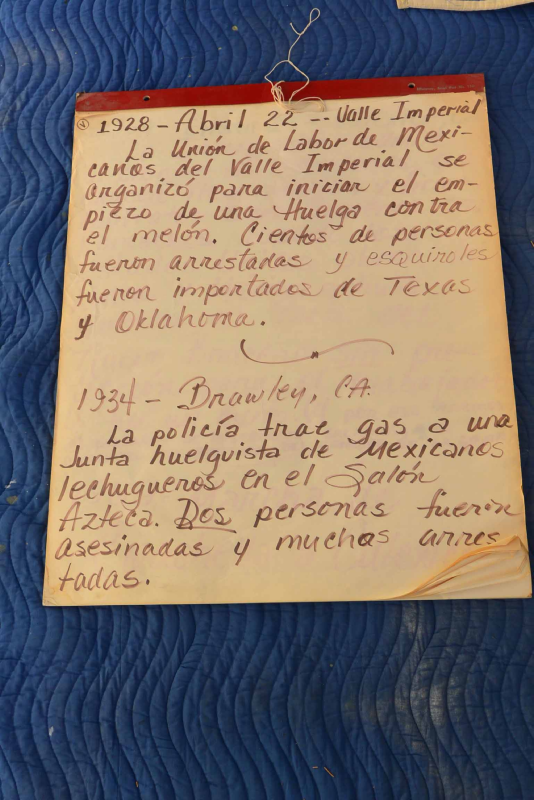 ④ 1928 - Abril 22 -- Valle Imperial
La Unión de Labor de Mexi-
canos del Valle Imperial se
organizó para iniciar el em-
piezo de una Huelga contra
el melón. Cientos de personas
fueron arrestadas y esquiroles
fueron importados de Texas
y Oklahoma.
1934 - Brawley, CA.
La policía trae gas a una
Junta huelguista de Mexicanos
lechugueros en el Salón
Azteca. Dos personas fueron
asesinadas y muchas arres
tadas.